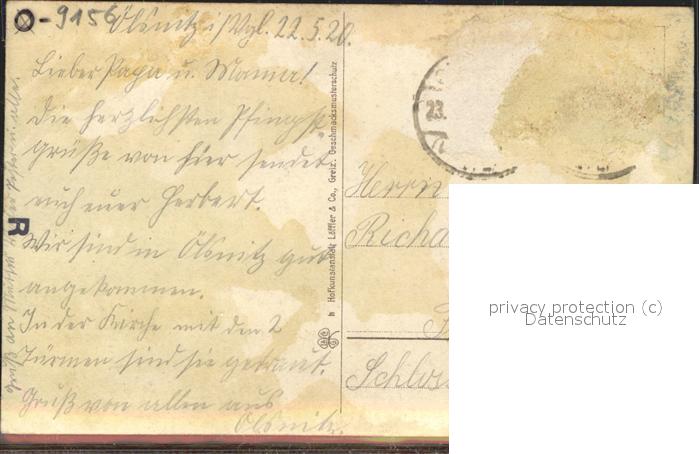 O-9156
Ölsnitz i/Vgl. 22.5.20.
Lieber Papa u. Mama!
Die herzlichsten Pfingst-
grüße von hier sendet
euch euer Herbert.
Wir sind in Ölsnitz gut
angekommen.
In der Kirche mit den 2
Türmen sind sie getraut.
Gruß von allen aus
Ölsnitz.
R
h Hofkunstanstalt Löffler & Co., Greiz. Geschmacksmusterschutz
23.
Herrn
Richa
Schlos
privacy protection (c)
Datenschutz